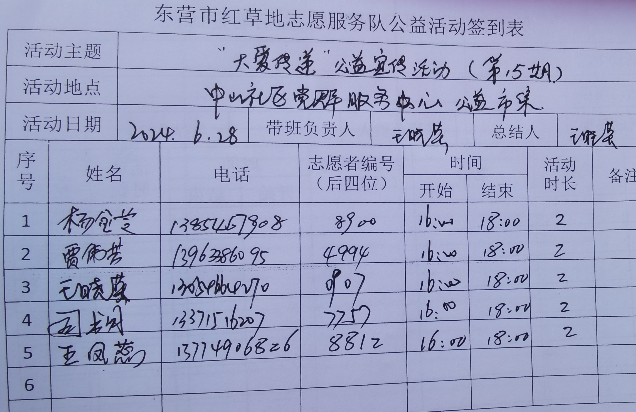 东营市红草地志愿服务队公益活动签到表
活动主题 “大爱传递”公益宣传活动(第15期)
活动地点 中山社区党群服务中心 公益市集
活动日期 2024.6.28 带班负责人 王晓蓉 总结人 王晓蓉
序号 姓名 电话 志愿者编号(后四位) 时间 活动时长 备注
开始 结束
1 8900 16:00 18:00 2
2 13963386095 4994 16:00 18:00 2
3 王晓蓉 0907 16:00 18:00 2
4 13371516207 7757 16:00 18:00 2
5 王凤蕊 13774906826 8812 16:00 18:00 2
6